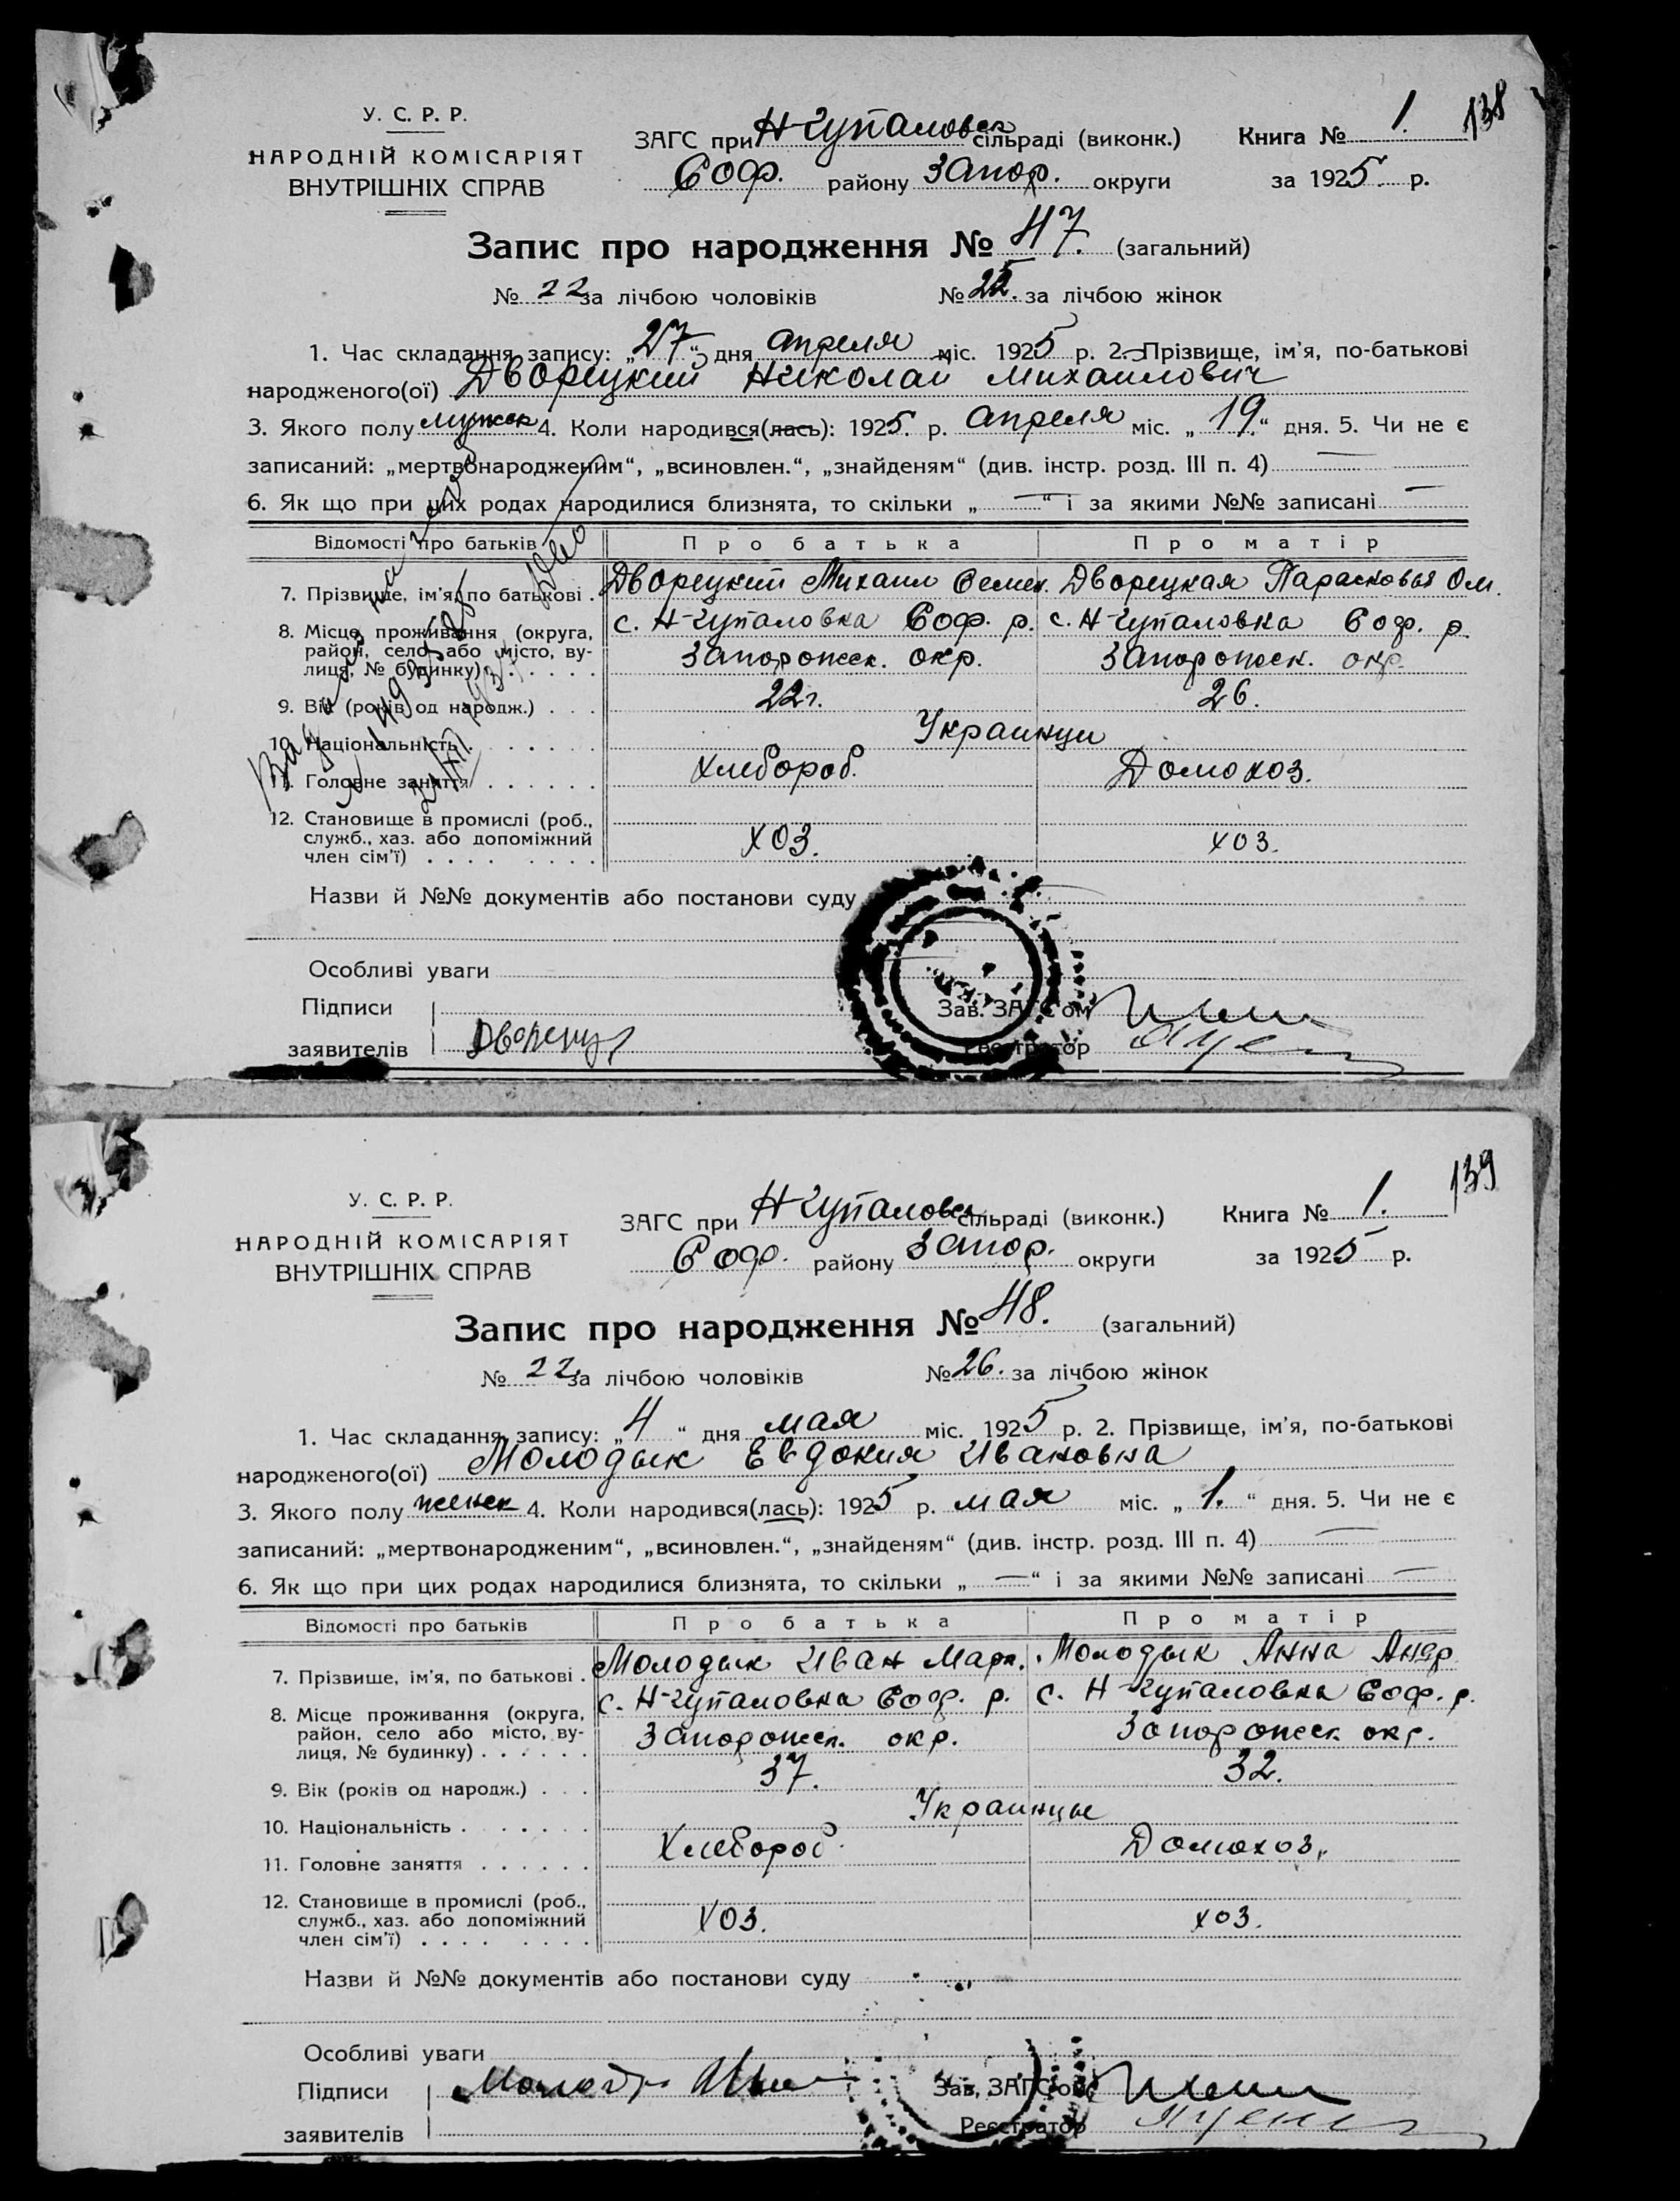 138
У. С. Р. Р.
НАРОДНІЙ КОМІСАРІЯТ
ВНУТРІШНІХ СПРАВ
ЗАГС при Н-Гупаловск сільраді (виконк.) Книга № 1.
Соф. району Запор. округи за 1925 р.
Запис про народження № 47. (загальний)
№ 22 за лічбою чоловіків № 25. за лічбою жінок
1. Час складання запису: „27“ дня апреля міс. 1925 р. 2. Прізвище, ім’я, по-батькові
народженого(ої) Дворецкий Николай Михаилович
3. Якого полу мужск 4. Коли народився(лась): 1925. р. Апреля міс. „19.“ дня. 5. Чи не є
записаний: „мертвонародженим“, „всиновлен.“, „знайденям“ (див. інстр. розд. III п. 4) —
6. Як що при цих родах народилися близнята, то скільки „—“ і за якими №№ записані —
Відомості про батьків Про батька Про матір
7. Прізвище, ім’я, по батькові . Дворецкий Михаил Семен. Дворецкая Парасковья Ом.
8. Місце проживання (округа, район, село або місто, вулиця, № будинку) . . . . . с. Н-Гупаловка Соф. р. Запорожск. окр. с. Н-Гупаловка Соф. р. Запорожск. окр.
9. Вік (років од народж.) . . . 22 г. 26.
10. Національність . . . . . . . Украинци
11. Головне заняття . . . . . . Хлебороб. Домохоз.
12. Становище в промислі (роб., служб., хаз. або допоміжний член сім’ї) . . . . . . . . хоз. хоз.
Назви й №№ документів або постанови суду
Особливі уваги
Підписи
заявителів
Зав. ЗАГС’ом
Реєстратор
139
У. С. Р. Р.
НАРОДНІЙ КОМІСАРІЯТ
ВНУТРІШНІХ СПРАВ
ЗАГС при Н-Гупаловск сільраді (виконк.) Книга № 1.
Соф. району Запор. округи за 1925 р.
Запис про народження № 48. (загальний)
№ 22. за лічбою чоловіків № 26. за лічбою жінок
1. Час складання запису: „4“ дня мая міс. 1925 р. 2. Прізвище, ім’я, по-батькові
народженого(ої) Молодык Евдокия Ивановна
3. Якого полу женск 4. Коли народився(лась): 1925 р. мая міс. „1.“ дня. 5. Чи не є
записаний: „мертвонародженим“, „всиновлен.“, „знайденям“ (див. інстр. розд. III п. 4) —
6. Як що при цих родах народилися близнята, то скільки „—“ і за якими №№ записані —
Відомості про батьків Про батька Про матір
7. Прізвище, ім’я, по батькові . Молодык Иван Марк. Молодык Анна Андр
8. Місце проживання (округа, район, село або місто, вулиця, № будинку) . . . . . . с. Н-Гупаловка Соф. р. Запорожск. окр. с. Н-Гупаловка Соф. р. Запорожск. окр.
9. Вік (років од народж.) . . . 37. 32.
10. Національність . . . . . . . Украинцы
11. Головне заняття . . . . . . Хлебороб. Домохоз.
12. Становище в промислі (роб., служб., хаз. або допоміжний член сім’ї) . . . . . . . . хоз. хоз.
Назви й №№ документів або постанови суду
Особливі уваги
Підписи
заявителів
Зав. ЗАГС’ом
Реєстратор